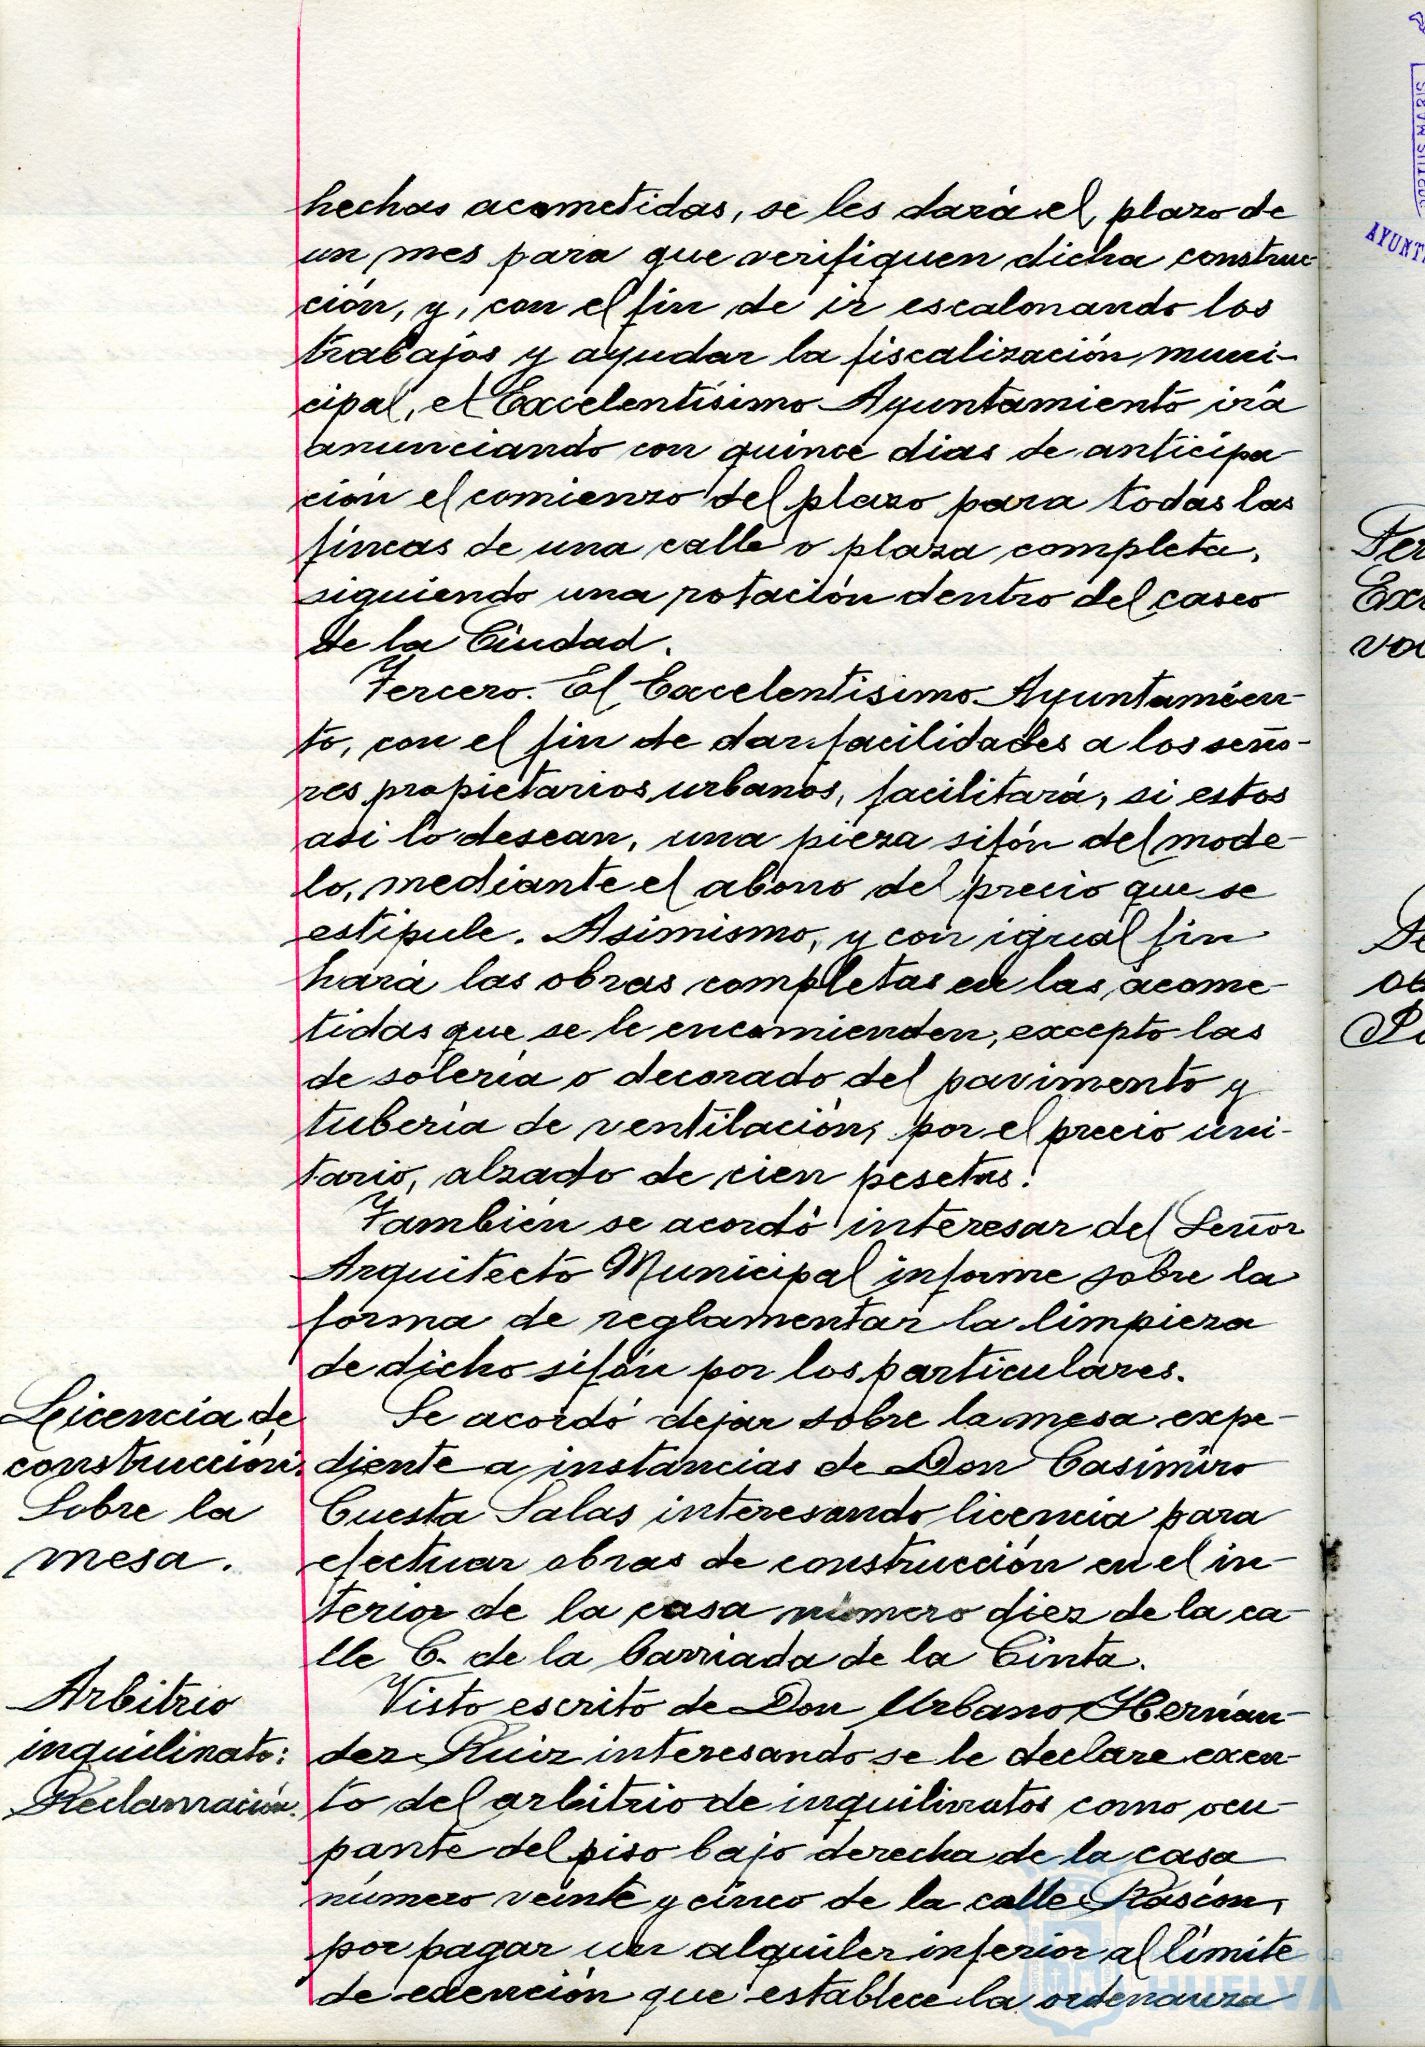 hechas acometidas, se les dará el plazo de
un mes para que verifiquen dicha construc-
ción, y, con el fin de ir escalonando los
trabajos y ayudar la fiscalización muni-
cipal, el Excelentísimo Ayuntamiento irá
anunciando con quince dias de anticipa
ción el comienzo del plazo para todas las
fincas de una calle o plaza completa,
siguiendo una rotación dentro del casco
de la Ciudad.
Tercero. El Excelentísimo Ayuntamien-
to, con el fin de dar facilidades a los seño-
res propietarios urbanos, facilitará, si estos
asi lo desean, una pieza sifón del mode-
lo, mediante el abono del precio que se
estipule. Asimismo, y con igual fin
hará las obras completas en las acome-
tidas que se le encomienden, excepto las
de solería o decorado del pavimento y
tubería de ventilación, por el precio uni-
tario, alzado de cien pesetas.
También se acordó interesar del Señor
Arquitecto Municipal informe sobre la
forma de reglamentar la limpieza
de dicho sifón por los particulares.
Licencia de
construcción.
Sobre la
mesa.
Se acordó dejar sobre la mesa expe-
diente a instancias de Don Casimiro
Cuesta Salas interesando licencia para
efectuar obras de construcción en el in-
terior de la casa número diez de la ca-
lle C. de la barriada de la Cinta.
Arbitrio
inquilinato:
Reclamación.
Visto escrito de Don Urbano Hernán-
dez Ruiz interesando se le declare exen-
to del arbitrio de inquilinatos como ocu-
pante del piso bajo derecha de la casa
número veinte y cinco de la calle Rascón,
por pagar un alquiler inferior al límite
de exención que establece la ordenanza
Ex
vo
AYUNT
HUELVA